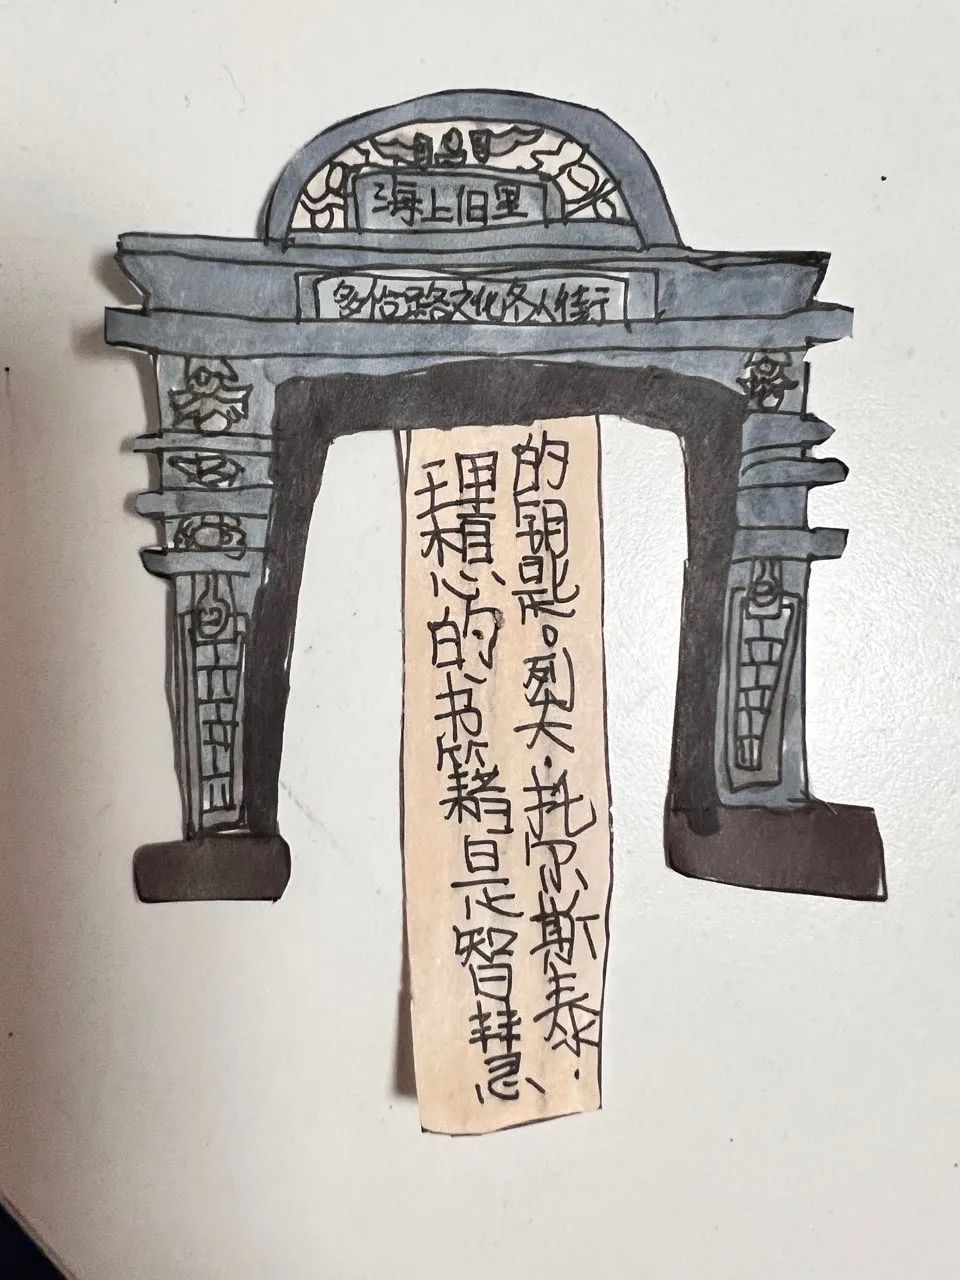 海上旧里
多伦路文化名人街
理想的书籍是智慧
的钥匙。列夫·托尔斯泰·